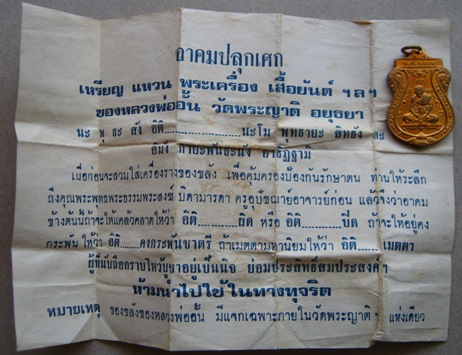 อาคมปลุกเศก
เหรียญ แหวน พระเครื่อง เสื้อยันต์ ฯลฯ
ของหลวงพ่ออั้น วัดพระญาติ อยุธยา
นะ พุ ทธะ สัง อิติ............... นะโม พุทธายะ สิทธัง อะ
อิมัง กายะพันธะนัง อาธิฏฐามิ
เมื่อก่อนจะสวมใส่เครื่องรางของขลัง เพื่อคุ้มครองป้องกันรักษาตน ท่านให้ระลึก
ถึงคุณพระพุทธพระธรรมพระสงฆ์ บิดามารดา ครูอุปัชฌาย์อาจารย์ก่อน แล้วจึงว่าอาคม
ข้างต้นนี้ถ้าจะให้แคล้วคลาดให้ว่า อิติ.........ผิด หรือ อิติ.........ปิด ถ้าจะให้อยู่คง
กระพัน ให้ว่า อิติ......คงกระพันชาตรี ถ้าเมตตามหานิยมให้ว่า อิติ......เมตตา
ผู้ที่นับถือกราบไหว้บูชาอยู่เป็นนิจ ย่อมประสิทธิ์สมประสงค์ฯ
ห้ามนำไปใช้ในทางทุจริต
หมายเหตุ ของขลังของหลวงพ่ออั้น มีแจกเฉพาะภายในวัดพระญาติ ฯ แห่งเดียว